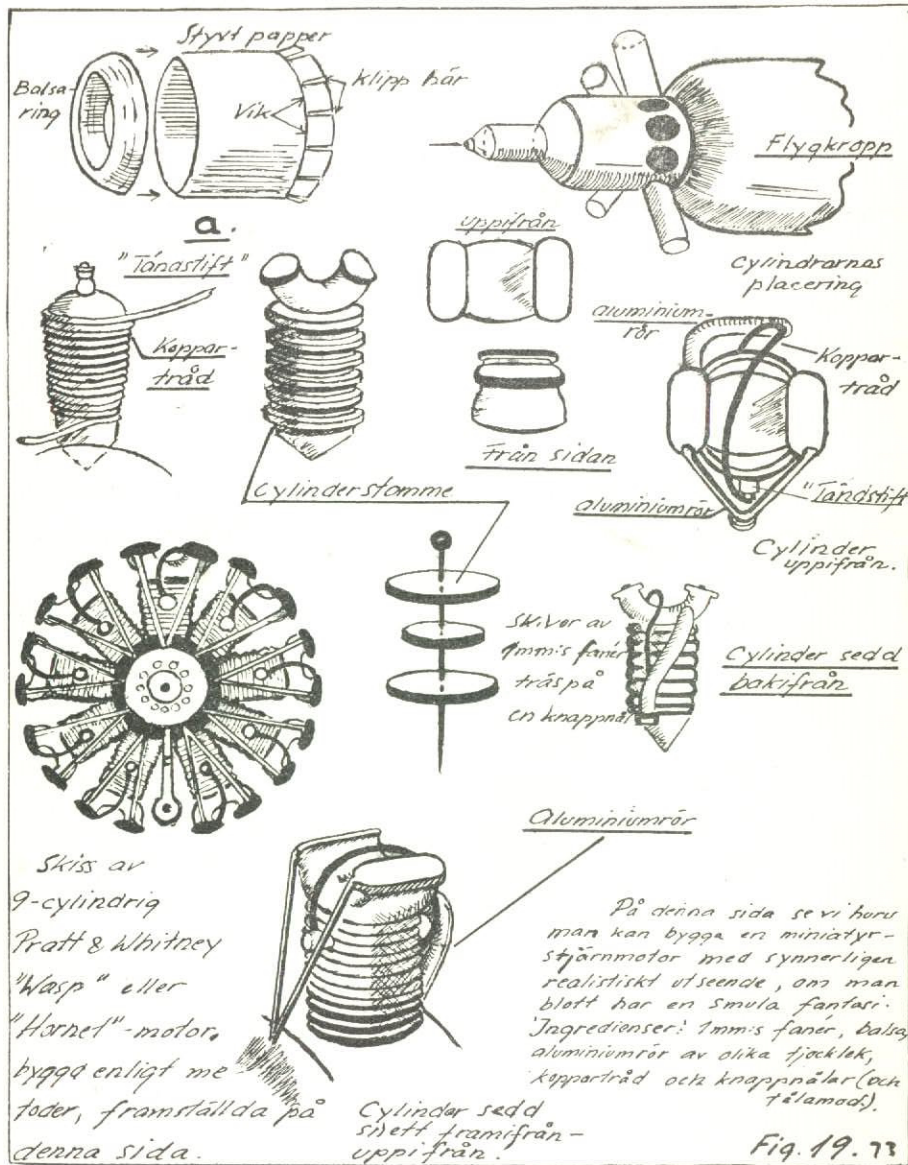 Styvt papper
Balsa-
ring
Klipp här
Vik
Flygkropp
a.
"Tändstift"
Koppar-
tråd
uppifrån
Cylindrarnas
placering
Från sidan
aluminium-
rör
Koppar-
tråd
"Tändstift"
aluminiumrör
Cylinder
uppifrån.
Cylinderstomme
Skivor av
1mm:s fanér
träs på
en knappnål
Cylinder sedd
bakifrån
Aluminiumrör
Skiss av
9-cylindrig
Pratt & Whitney
"Wasp" eller
"Hornet"-motor,
byggd enligt me
toder, framställda på
denna sida.
Cylinder sedd
snett framifrån-
uppifrån.
På denna sida se vi huru
man kan bygga en miniatyr-
stjärnmotor med synnerligen
realistiskt utseende, om man
blott har en smula fantasi.
Ingredienser: 1mm:s fanér, balsa,
aluminiumrör av olika tjocklek,
koppartråd och knappnålar (och
tålamod).
Fig. 19. 73